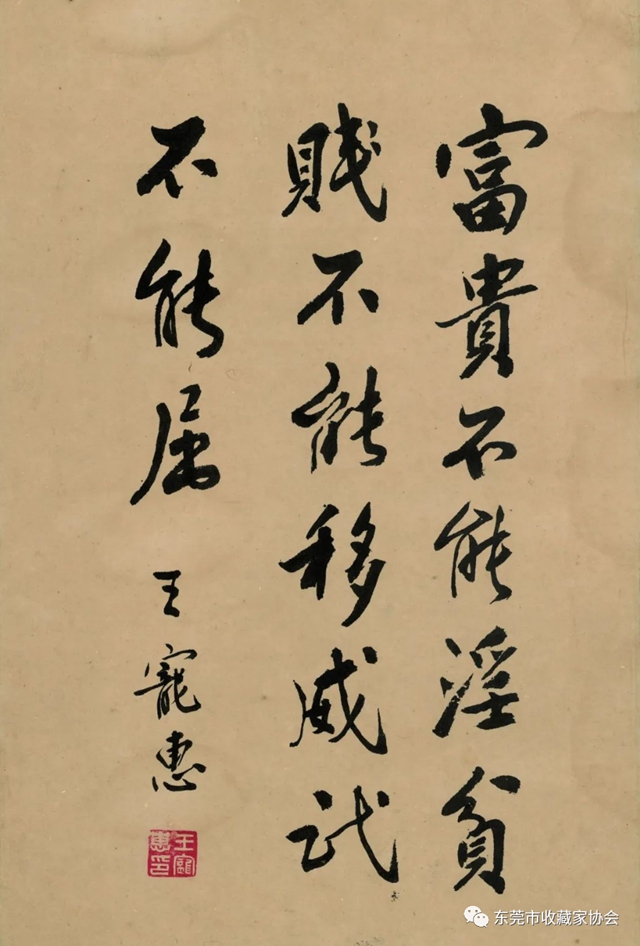 富貴不能淫貧
賤不能移威武
不能屈
王寵惠
王寵惠印
东莞市收藏家协会